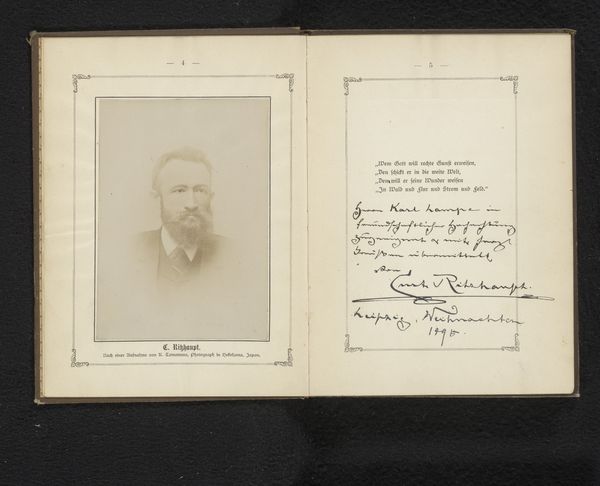 — 4 —
C. Ritzhaupt.
Nach einer Aufnahme von K. Tamamura, Photograph in Yokohama, Japan.
— 5 —
„Wem Gott will rechte Gunst erweisen,
„Den schickt er in die weite Welt,
„Dem will er seine Wunder weisen
„In Wald und Flur und Strom und Feld.“
Herrn Karl Lampe in
freundschaftlicher Hochachtung
zugeeignet &
übermittelt
von
Curt Ritzhaupt.
Leipzig, Weihnachten